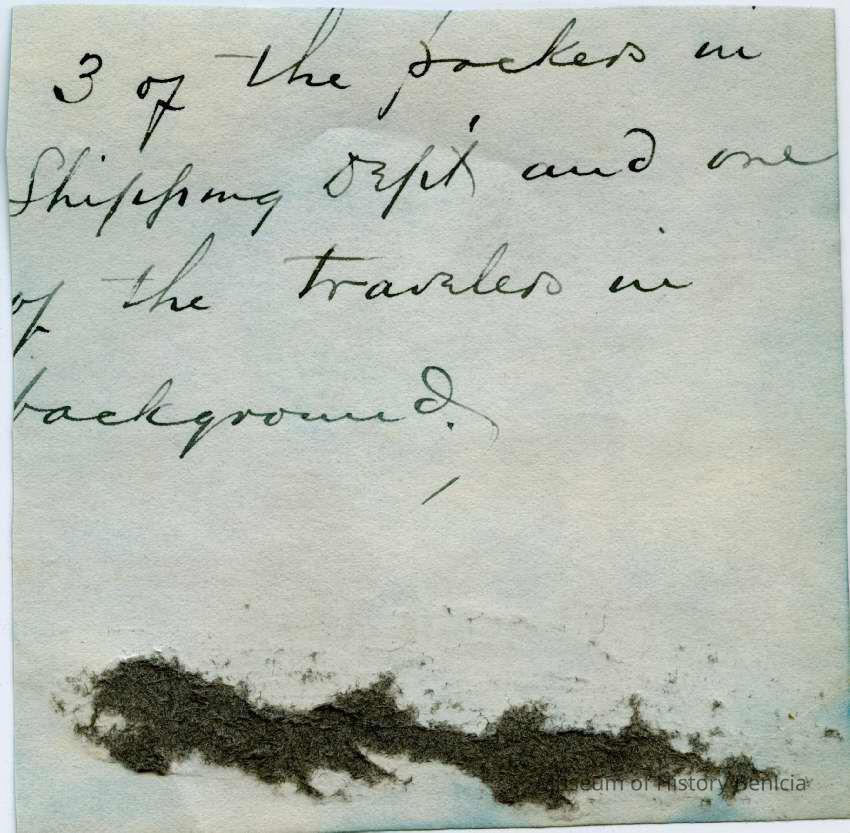 3 of the packers in
Shipping Dep't and one
of the travelers in
background.
Museum of History Benicia